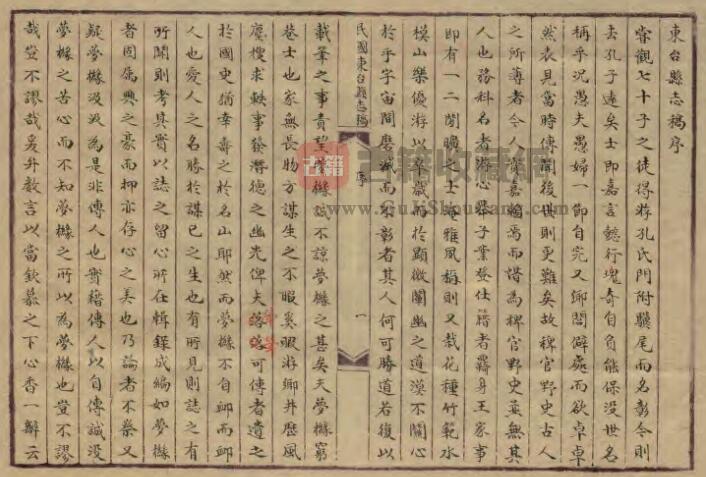 東台縣志稿序
嘗觀七十子之徒得游孔氏門附驥尾而名彰今則
去孔子遠矣士即嘉言懿行瑰奇自負能保没世名
稱乎況愚夫愚婦一節自完又鄉閭僻處而欲卓卓
然表見當時傳聞後世則更難矣故稗官野史古人
之所薄者今人實嘉賴焉而謂為稗官野史蓋無其
人也務科名者游心舉子業登仕籍者羈身王家事
即有一二閒曠之士雅風稱則又栽花種竹範水
模山樂優游以卒歲而於顯微闡幽之道漠不關心
於乎宇宙間磨滅而不彰者其人何可勝道若復以
民國東台縣志稿
序
一
載筆之事責望夢檖誠不諒夢檖之甚矣夫夢檖窮
巷士也家無長物方謀生之不暇奚暇游鄉井歷風
塵搜求軼事發潛德之幽光俾夫落落可傳者遺之
於國史猶幸壽之於名山耶然而夢檖不自卹而卹
人也愛人之名勝於謀己之生也有所見則誌之有
所聞則考其實以誌之留心所在輯錄成編如夢檖
者固屬興之豪而抑亦存心之美也乃論者不察又
疑夢檖汲汲為是非傳人也實藉傳人以自傳誠没
夢檖之苦心而不知夢檖之所以為夢檖也豈不謬
哉豈不謬哉爰升數言以當欽慕之下心香一瓣云
古籍
古籍收藏网
www.GuJiShouCang.com